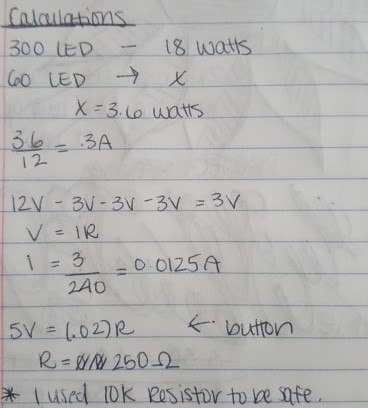 Calculations
300 LED – 18 watts
60 LED → x
x = 3.6 watts
3.6/12 = .3A
12V - 3V - 3V - 3V = 3V
V = IR
i = 3/240 = 0.0125A
5V = (.02)R ← button
R = 250Ω
* I used 10K Resistor to be safe.